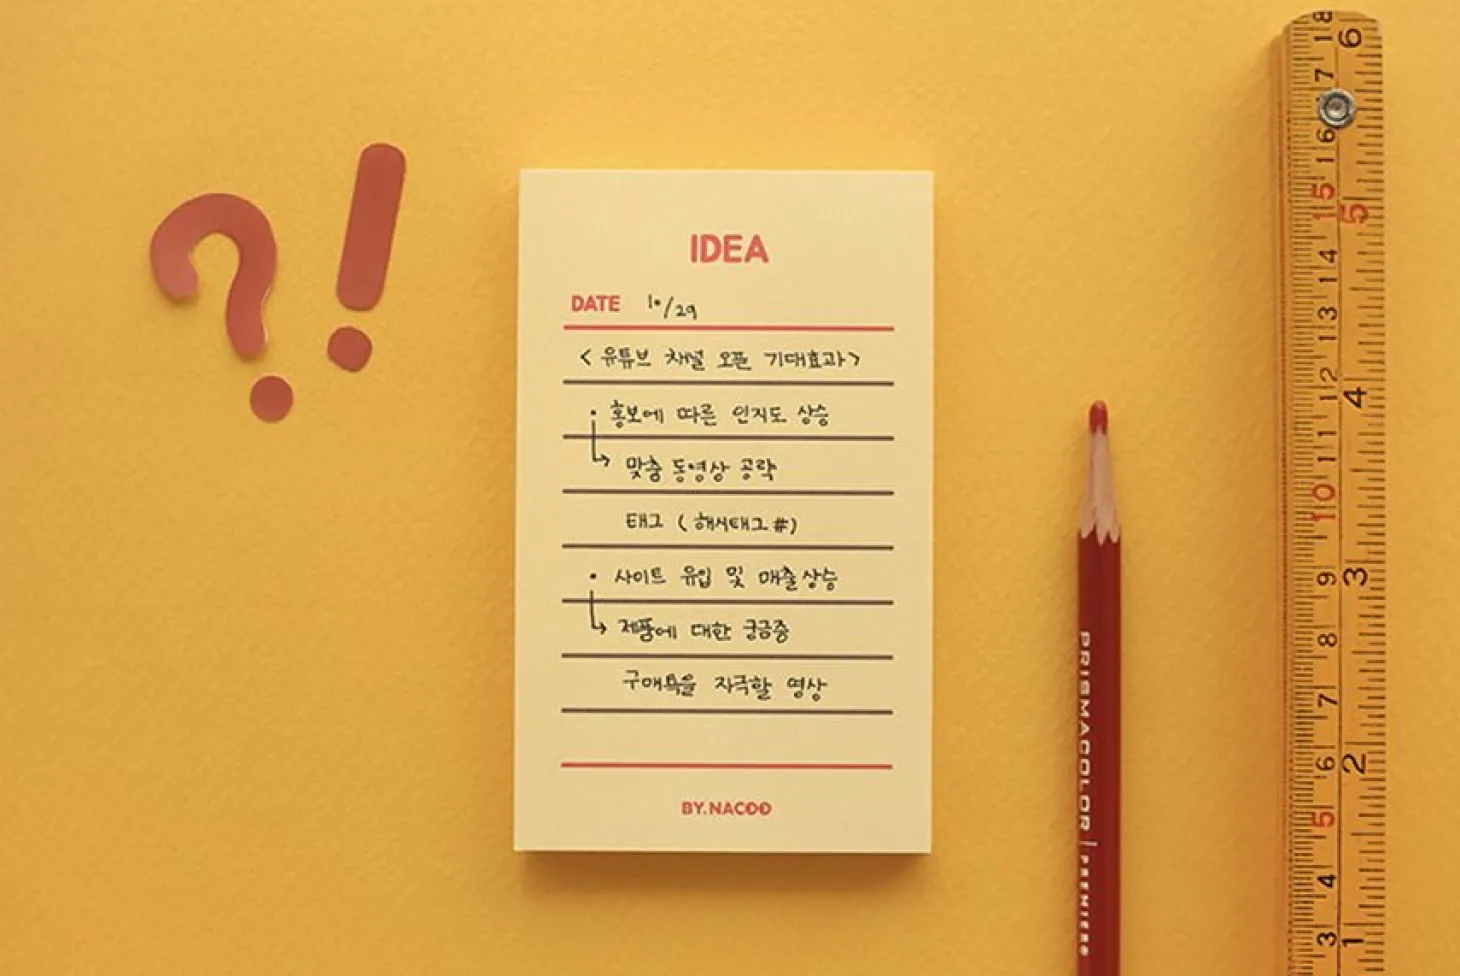 ?!
IDEA
DATE 10/29
< 유튜브 채널 오픈 기대효과 >
• 홍보에 따른 인지도 상승
↳ 맞춤 동영상 공략
태그 ( 해시태그 # )
• 사이트 유입 및 매출 상승
↳ 제품에 대한 궁금증
구매욕을 자극할 영상
BY.NACOO
PRISMACOLOR | PREMIER
18 17 16 15 14 13 12 11 10 9 8 7 6 5 4 3
6 5 4 3 2 1